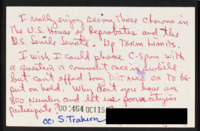 I really enjoy seeing these Clowns in
the U.S. House of Reprobates and the
U.S. Senile Senate. Up Term Limits.
I wish I could phone C-Span with
a question or comment
but can't afford long DISTANCE or to be
put on hold. Why don't you have an
800 Number and let us poor citizens
participate?
00:464 OCT 15
cc: S. Trahern